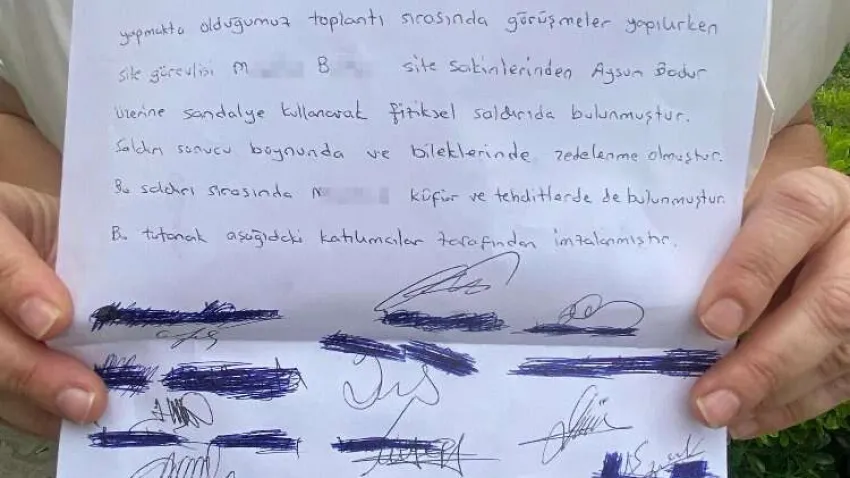 yapmakta olduğumuz toplantı sırasında görüşmeler yapılırken
site görevlisi M B site sakinlerinden Aysun Bodur
üzerine sandalye kullanarak fiziksel saldırıda bulunmuştur.
Saldırı sonucu boynunda ve bileklerinde zedelenme olmuştur.
Bu saldırı sırasında M küfür ve tehditlerde de bulunmuştur.
Bu tutanak aşağıdaki katılımcılar tarafından imzalanmıştır.